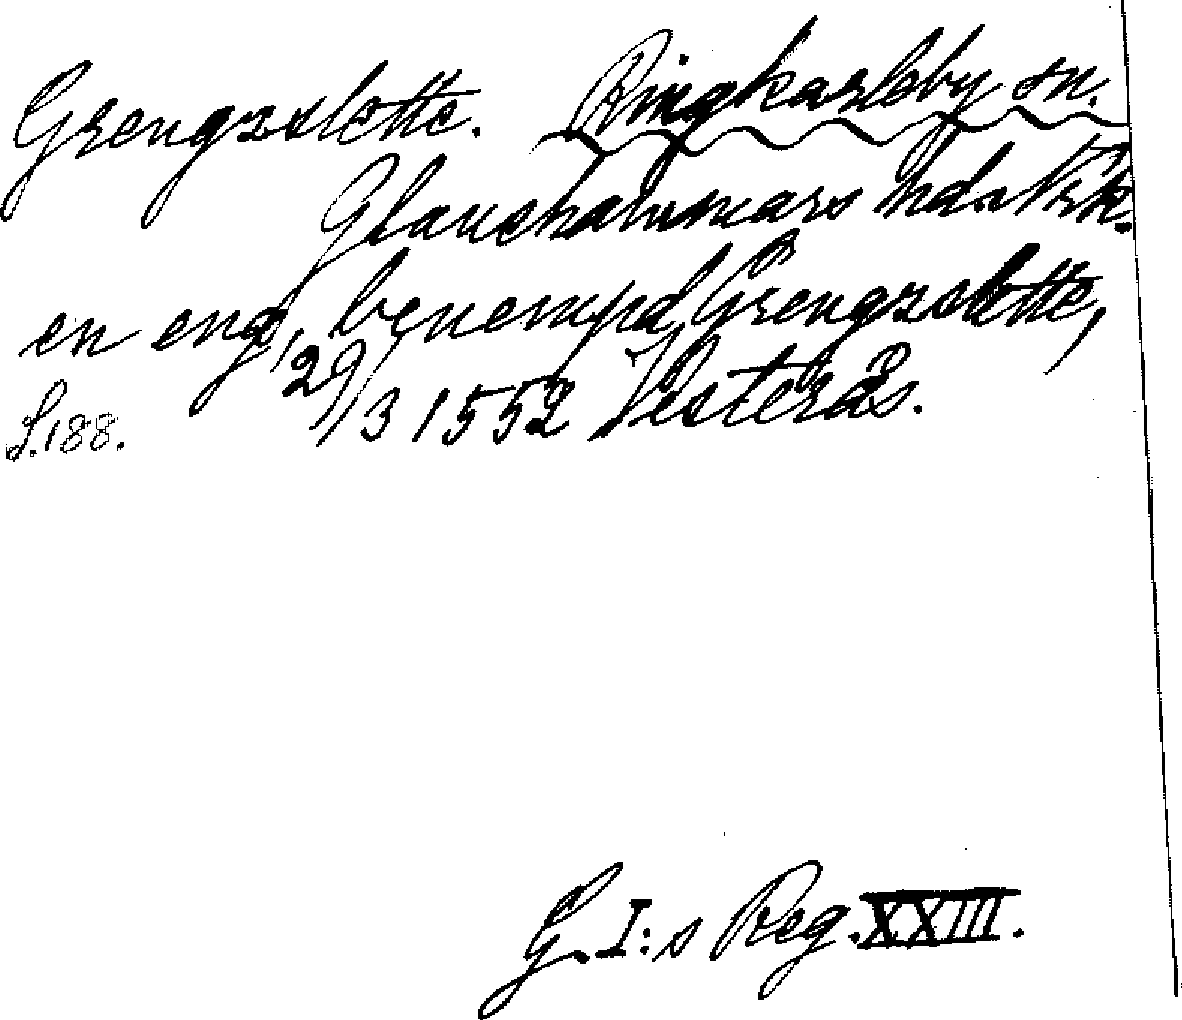 Grengzslette. Ringkarleby sn.
Glanshammars hd. Nrk.
en eng, benempd Grengzslette,
29/3 1552 Vesterås.
S. 188.
G. I:s Reg. XXIII.